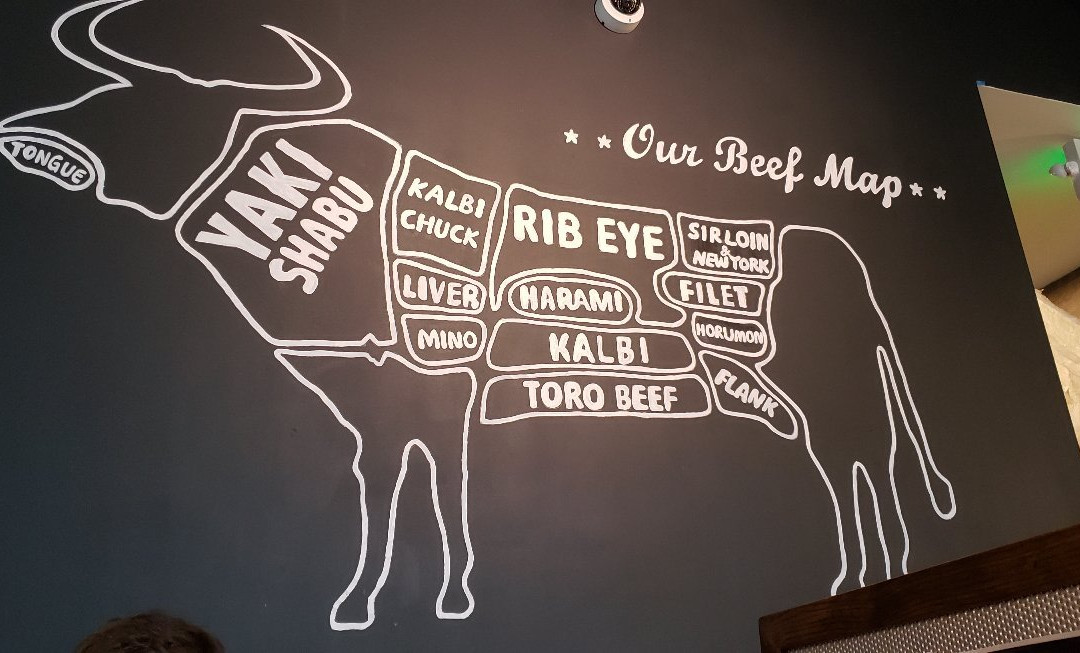 * * Our Beef Map * *
TONGUE
YAKI
SHABU
KALBI
CHUCK
LIVER
MINO
RIB EYE
HARAMI
KALBI
TORO BEEF
SIRLOIN
&
NEW YORK
FILET
HORUMON
FLANK